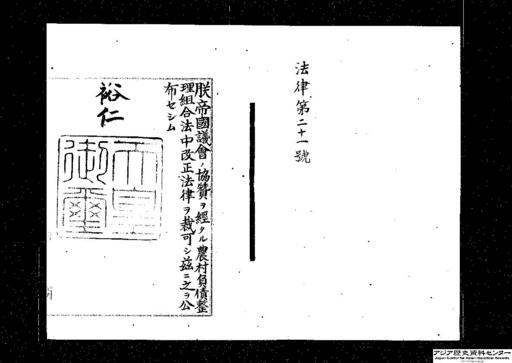 法律第二十一號
朕帝國議會ノ協贊ヲ經タル農村負債整
理組合法中改正法律ヲ裁可シ茲ニ之ヲ公
布セシム
裕仁
天皇
御璽
アジア歴史資料センター
Japan Center for Asian Historical Records